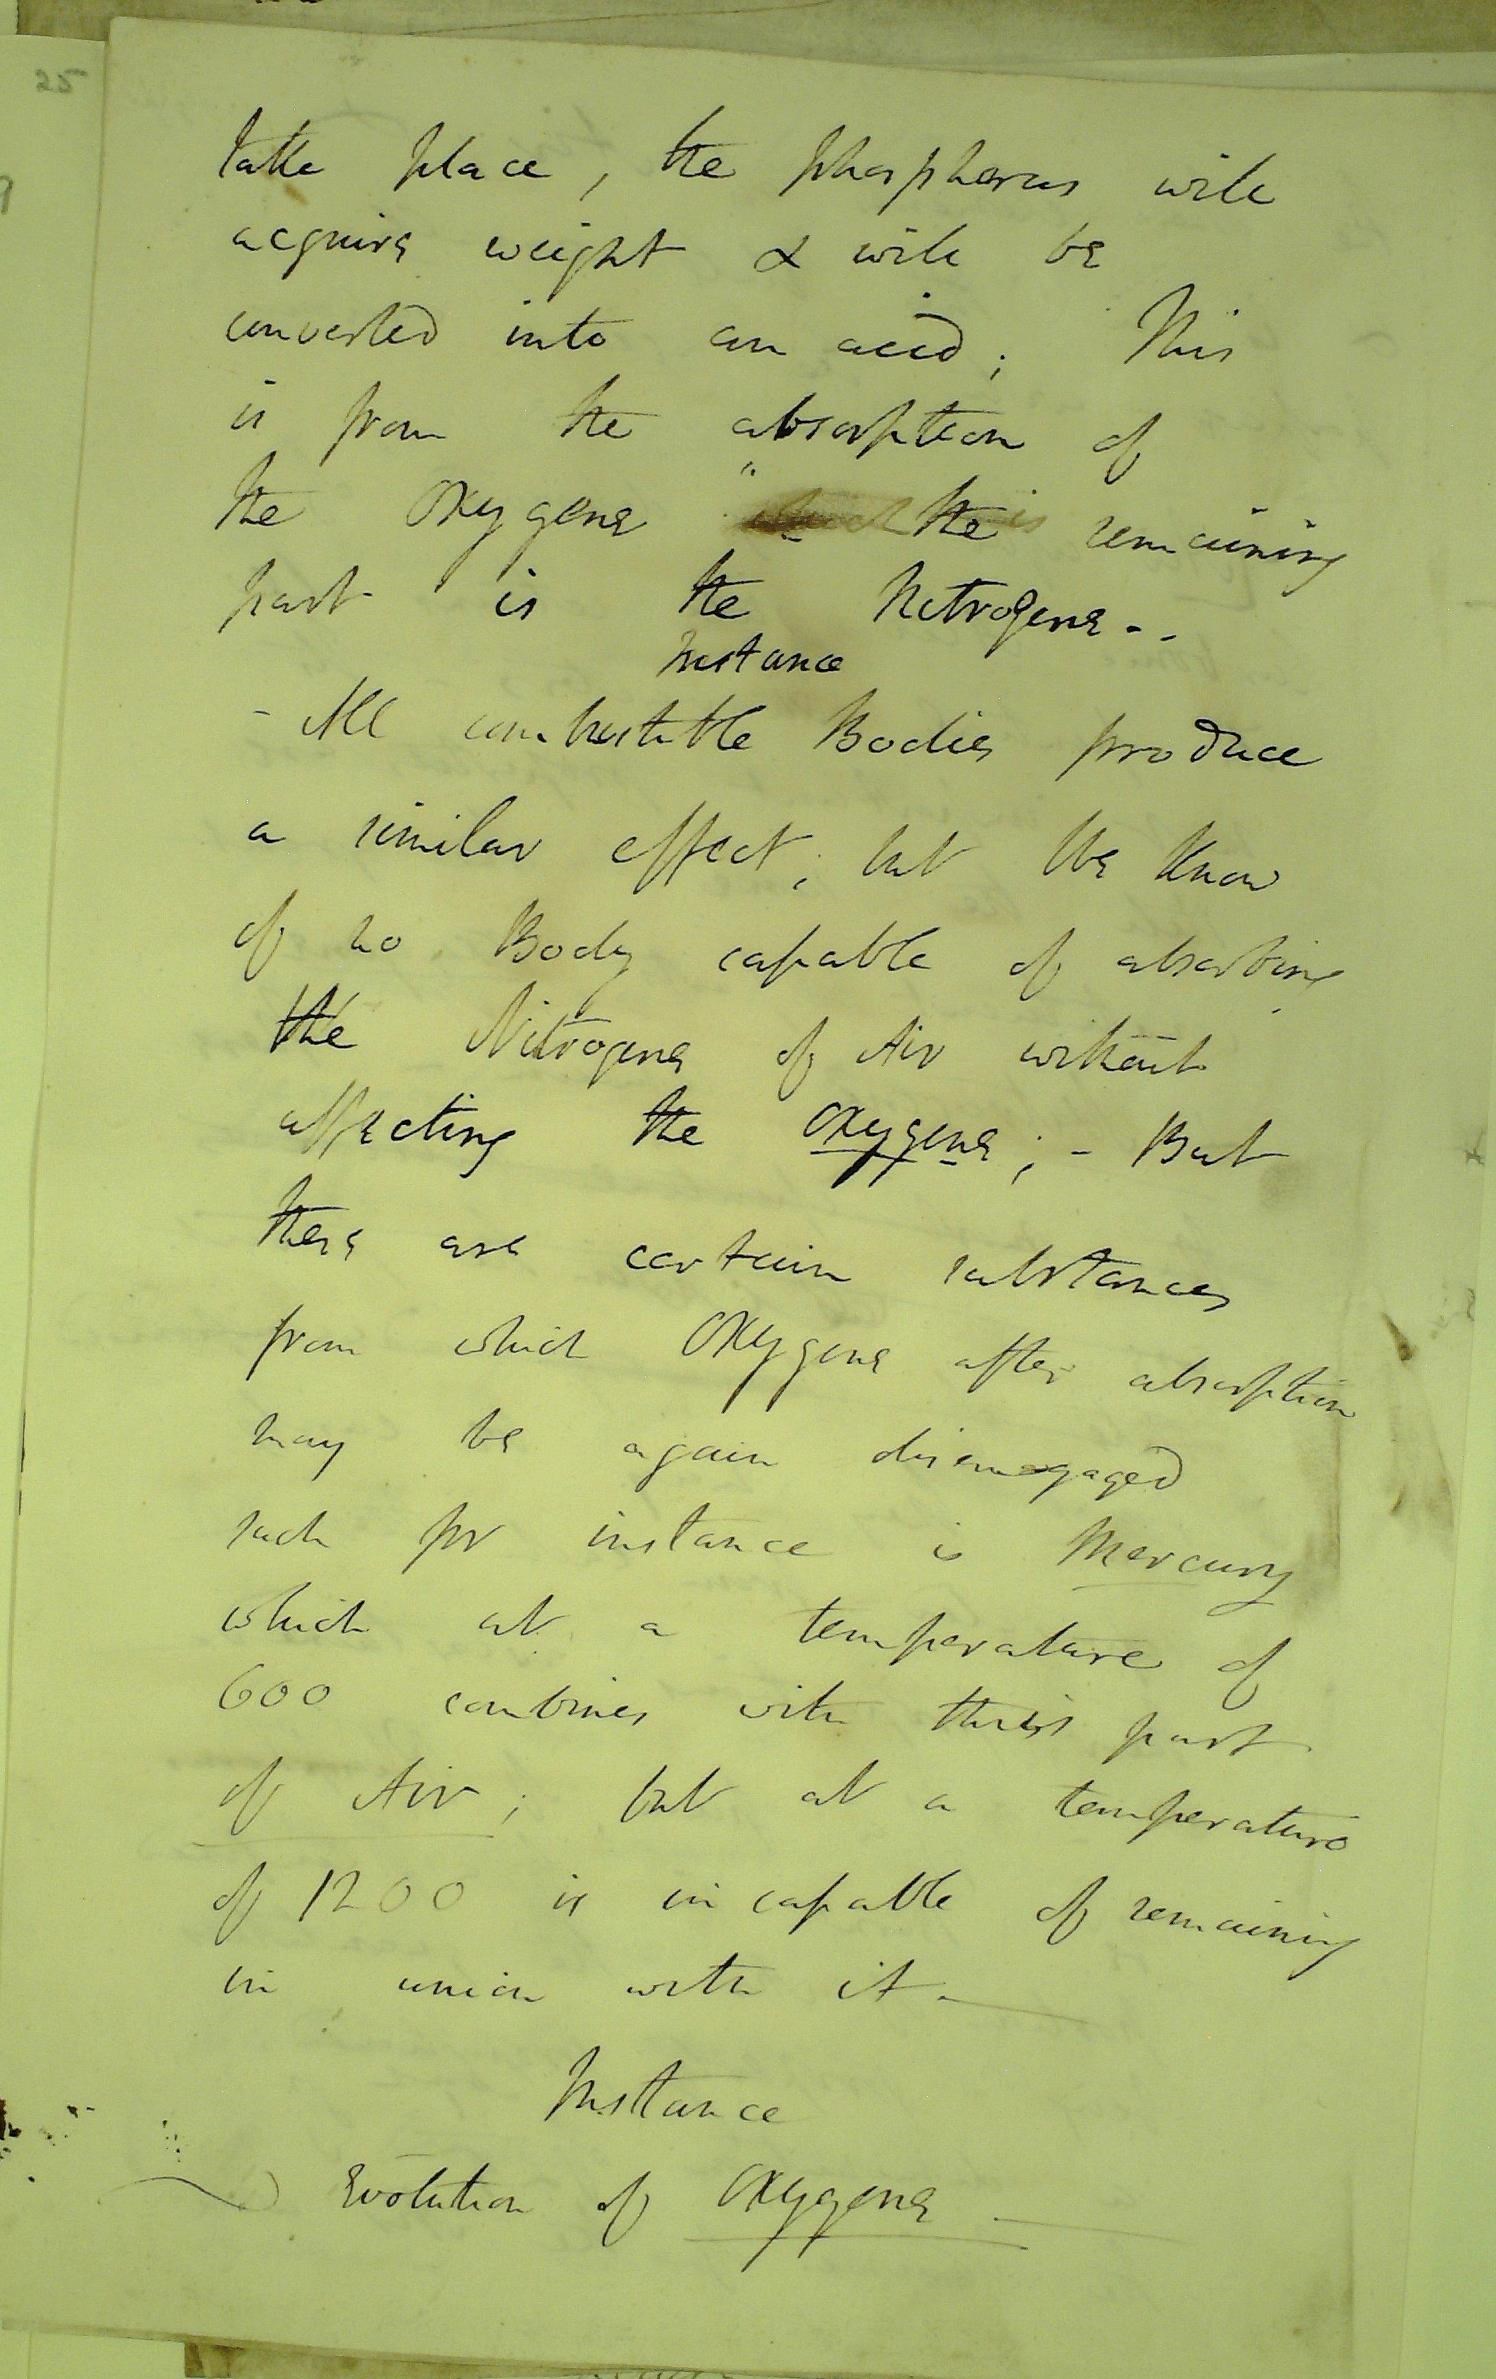 25
take place, the phosphorus will
acquire weight & will be
converted into an acid; This
is from the absorption of
the Oxygene the remaining
part is the Nitrogene. -
Instance
- All combustible Bodies produce
a similar effect; but We know
of no Body capable of absorbing
the Nitrogene of Air without
affecting the Oxygene; - But
there are certain substances
from which Oxygene after absorption
may be again disengaged
such for instance is Mercury
which at a temperature of
600 combines with this part
of Air; but at a temperature
of 1200 is incapable of remaining
in union with it -
Instance
Evolution of Oxygene -